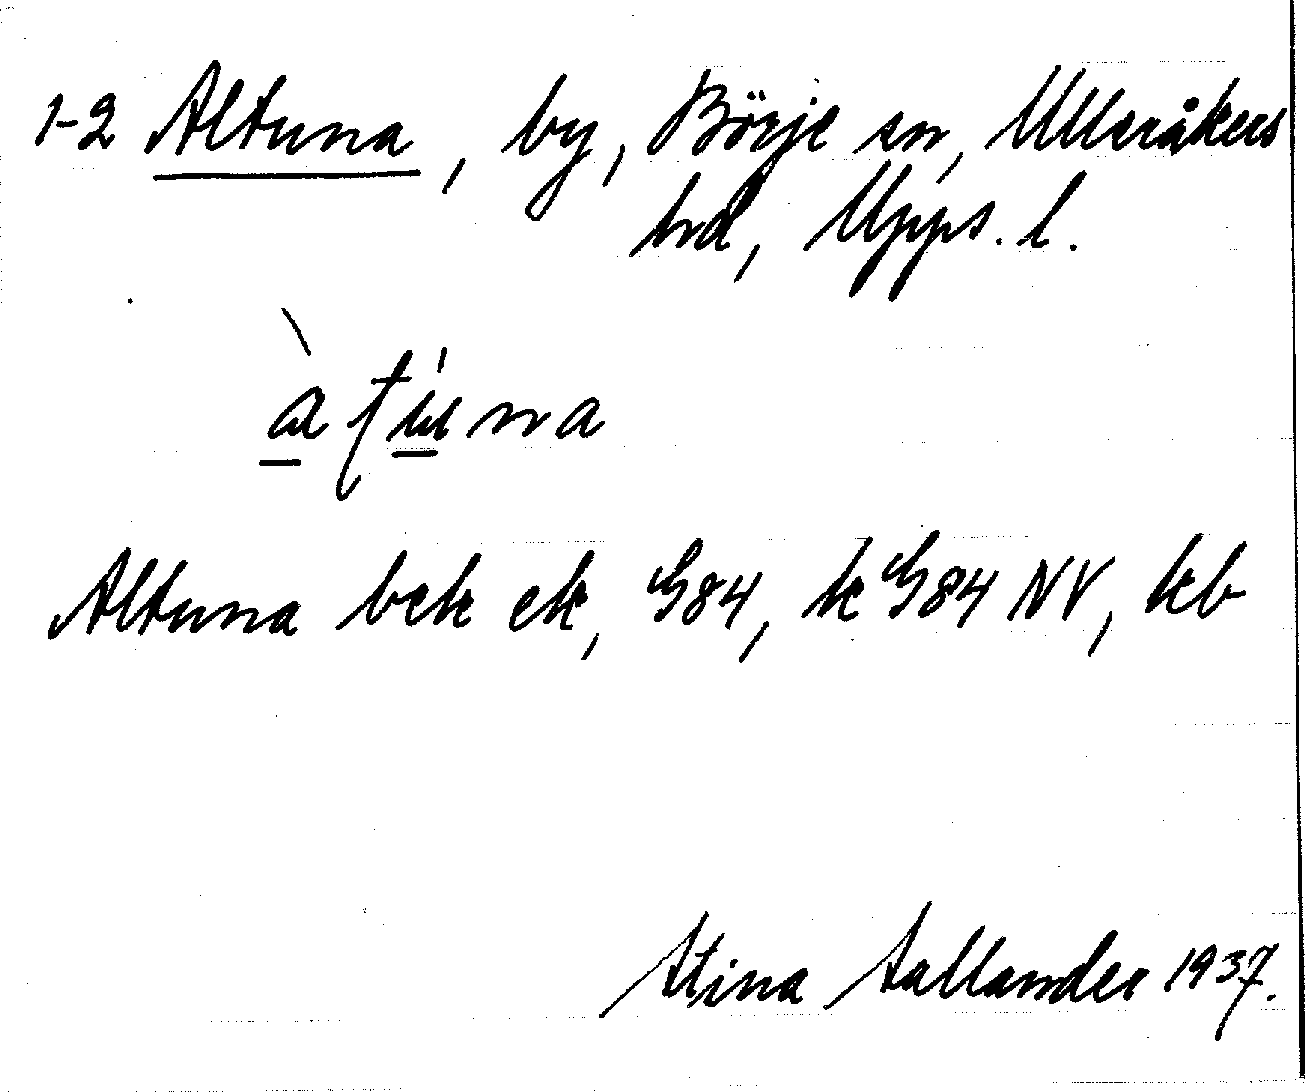 1-2 Altuna, by, Börje sn, Ulleråkers
hd, Upps. l.
àt̩úna
Altuna bek ek, G84, k G84 NV, kb
Stina Sallander 1937.